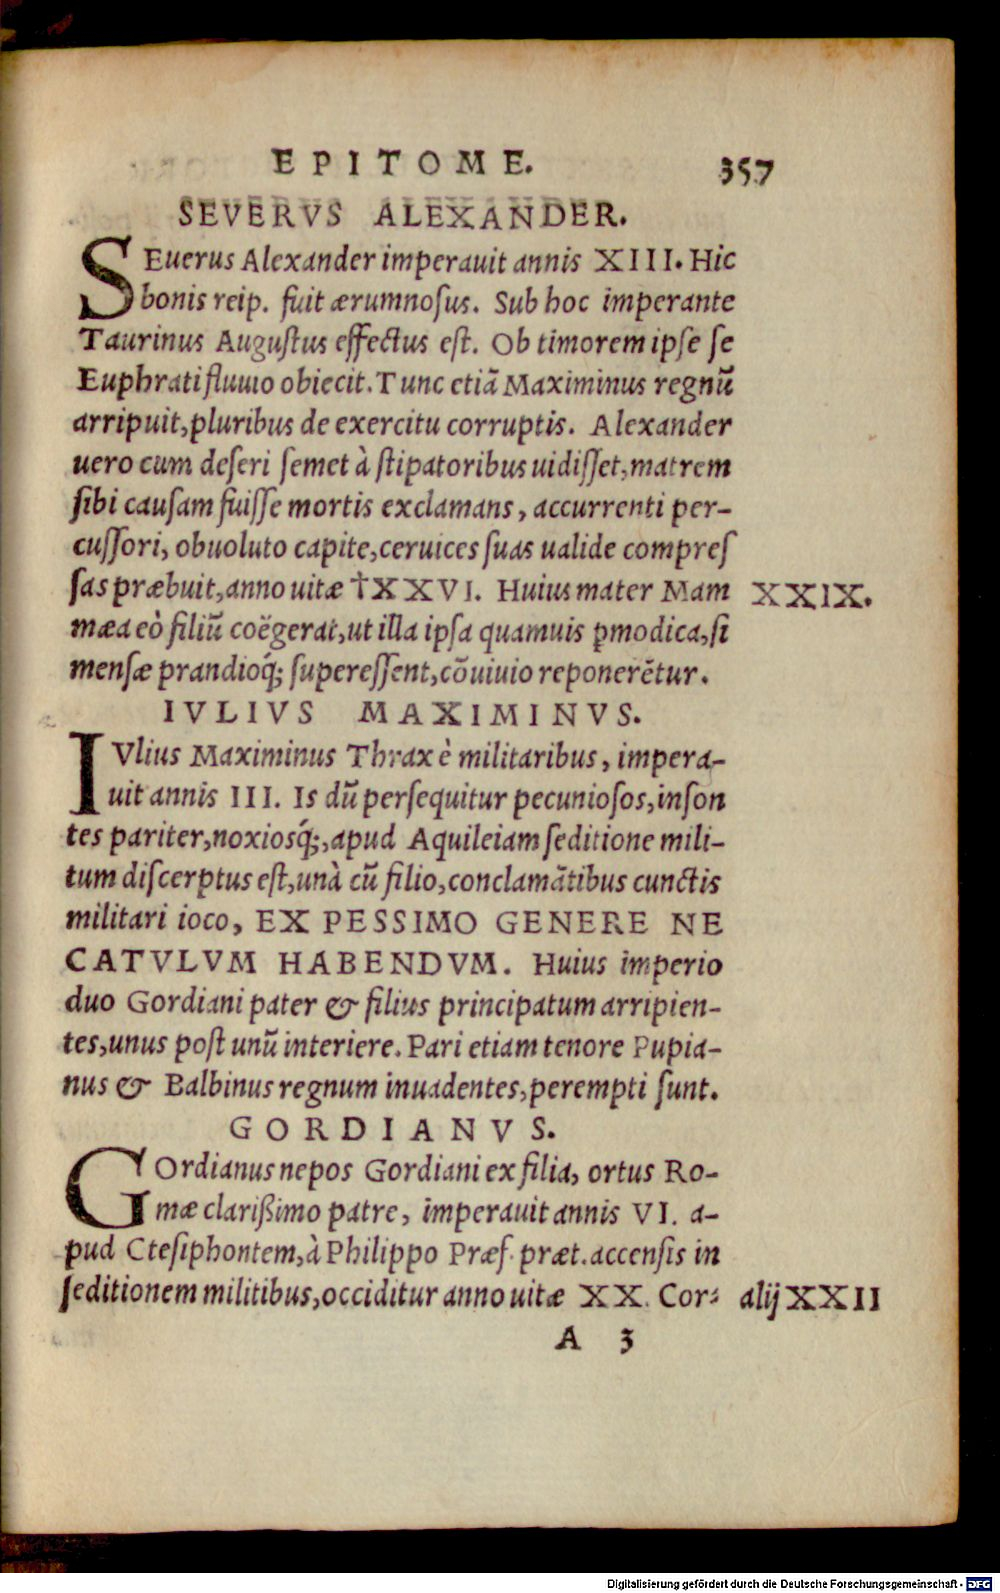 EPITOME. 357
SEVERVS ALEXANDER.
SEuerus Alexander imperauit annis XIII. Hic
bonis reip. fuit ærumnoſus. Sub hoc imperante
Taurinus Auguſtus effectus eſt. Ob timorem ipſe ſe
Euphrati fluuio obiecit. Tunc etiã Maximinus regnũ
arripuit, pluribus de exercitu corruptis. Alexander
uero cum deſeri ſemet à ſtipatoribus uidiſſet, matrem
ſibi cauſam fuiſſe mortis exclamans, accurrenti per-
cuſſori, obuoluto capite, ceruices ſuas ualide compreſ
ſas præbuit, anno uitæ †XXVI. Huius mater Mam XXIX.
mæa eò filiũ coëgerat, ut illa ipſa quamuis ꝑmodica, ſi
menſæ prandioq́; ſupereſſent, cõuiuio reponerẽtur.
IVLIVS MAXIMINVS.
IVlius Maximinus Thrax è militaribus, impera-
uit annis III. Is dũ perſequitur pecunioſos, inſon
tes pariter, noxiosq́;, apud Aquileiam ſeditione mili-
tum diſcerptus eſt, unà cũ filio, conclamãtibus cunctis
militari ioco, EX PESSIMO GENERE NE
CATVLVM HABENDVM. Huius imperio
duo Gordiani pater & filius principatum arripien-
tes, unus poſt unũ interiere. Pari etiam tenore Pupia-
nus & Balbinus regnum inuadentes, perempti ſunt.
GORDIANVS.
GOrdianus nepos Gordiani ex filia, ortus Ro-
mæ clarißimo patre, imperauit annis VI. a-
pud Cteſiphontem, à Philippo Præf. præt. accenſis in
ſeditionem militibus, occiditur anno uitæ XX. Cor: alij XXII
A 3
Digitalisierung gefördert durch die Deutsche Forschungsgemeinschaft - DFG